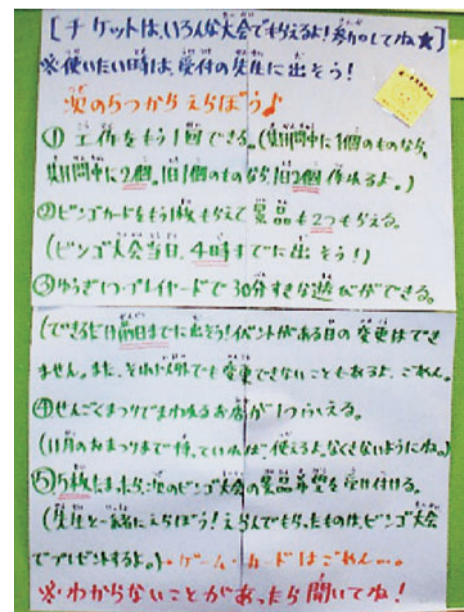 [チケットは、いろんな大会でもらえるよ！参加してね★]
※使いたい時は、受付の先生に出そう！
次の5つからえらぼう♪
① 工作をもう1回できる。(期間中に1個のものなら、
期間中に2個。1日1個のものなら、1日2個作れるよ。)
②ビンゴカードをもう1枚もらえて景品も2つもらえる。
(ビンゴ大会当日、4時までに出そう！)
③ゆうぎしつ・プレイヤードで30分すきな遊びができる。
(できるだけ前日までに出そう！イベントがある日の変更はでき
ません。また、それ以外でも変更できないこともあるよ、ごめん。
④せんごくまつりでまわれるお店が1つふえる。
(11月のおまつりまで待っていれば、使えるよ。なくさないようにね。)
⑤5枚たまったら、次のビンゴ大会の景品希望を受け付ける。
(先生と一緒にえらぼう！えらんでもらったものは、ビンゴ大会
でプレゼントするよ。)・ゲーム・カードはごめん…。
※わからないことがあったら聞いてね！